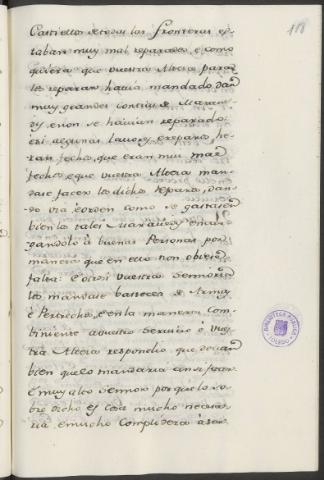 118
Castiellos de todas las fronteras es-
taban muy mal reparados, e como
quiera que vuestra Alteza para
les reparar havia mandado dar
muy grandes contias de Marave-
dis e non se havian reparado:
e si algunas lavores, e reparos he-
ran fechos, que eran muy mal
fechos, e que vuestra Alteza man-
dase facer los dichos reparos, dan-
do via, e orden como se gastasen
bien los tales Maravedis e encar-
gandolo à buenas Personas por
manera que en ello non obiese
falta: E otrosi vuestra Señoria
les mandase bastecer de Armas
e Pertrechos, e en la manera com-
biniente a vuestro Servicio e vues-
tra Alteza respondio que decian
bien que lo mandaria ansi facer
E muy alto Señor porque lo so-
bre dicho es cosa mucho necesa-
ria, e mucho complidera à vro
BIBLIOTECA
TOLEDO